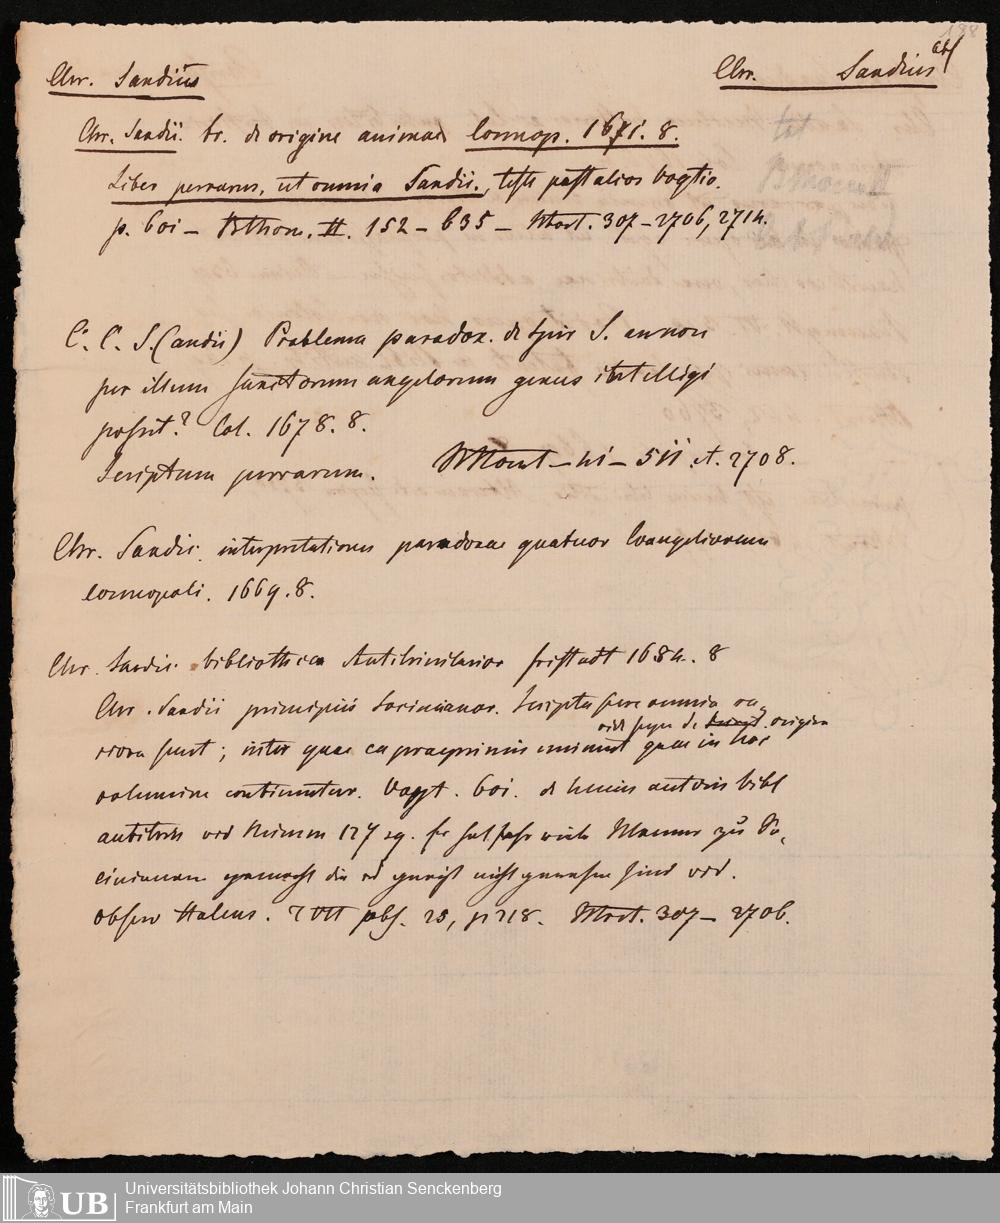 188
Chr. Sandius
Chr. Sandius
Chr. Sandii. tr. de origine animae Cosmop. 1671. 8.
Liber perrarus, ut omnia Sandii., teste post alios Vogtio.
p. 601 – Bthom. II. 152 – 635 – 307 – 2706, 2714.
C. C. S.(andii) Problema paradox. de Spir S. annon
per illum Sanctorum angelorum genus intelligi
possit? Col. 1678. 8.
Scriptum perrarum. – 511 et. 2708.
Chr. Sandii interpretationes paradoxae quatuor Evangeliorum
Cosmopoli. 1669. 8.
Chr. Sandii. bibliotheca Antitrinitarior freistadt 1684. 8
Chr. Sandii principis Socinianor. Scripta fere omnia ra-
de origine
riora sunt; inter quae ea praeprimis eminent quae in hoc
volumine continentur. Vogt. 601. de huius autoris bibl
antitrin vid 127 sq. er hat sehr viele Männer zu So-
cinianern gemacht die es gewiß nicht gewesen sind vid.
observ Halens. obs. 25, p 718. 307 – 2706.
Universitätsbibliothek Johann Christian Senckenberg
Frankfurt am Main
UB